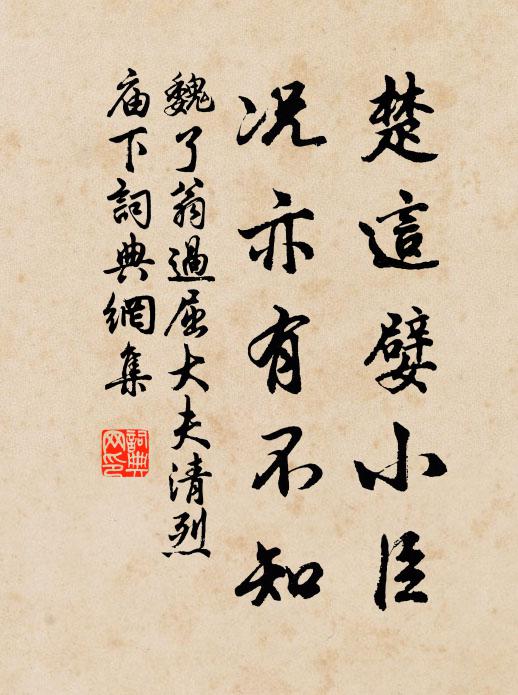 楚這嬖小臣
況亦有不知
魏了翁過屈大夫清烈
庙下詞典網集
詞典网印